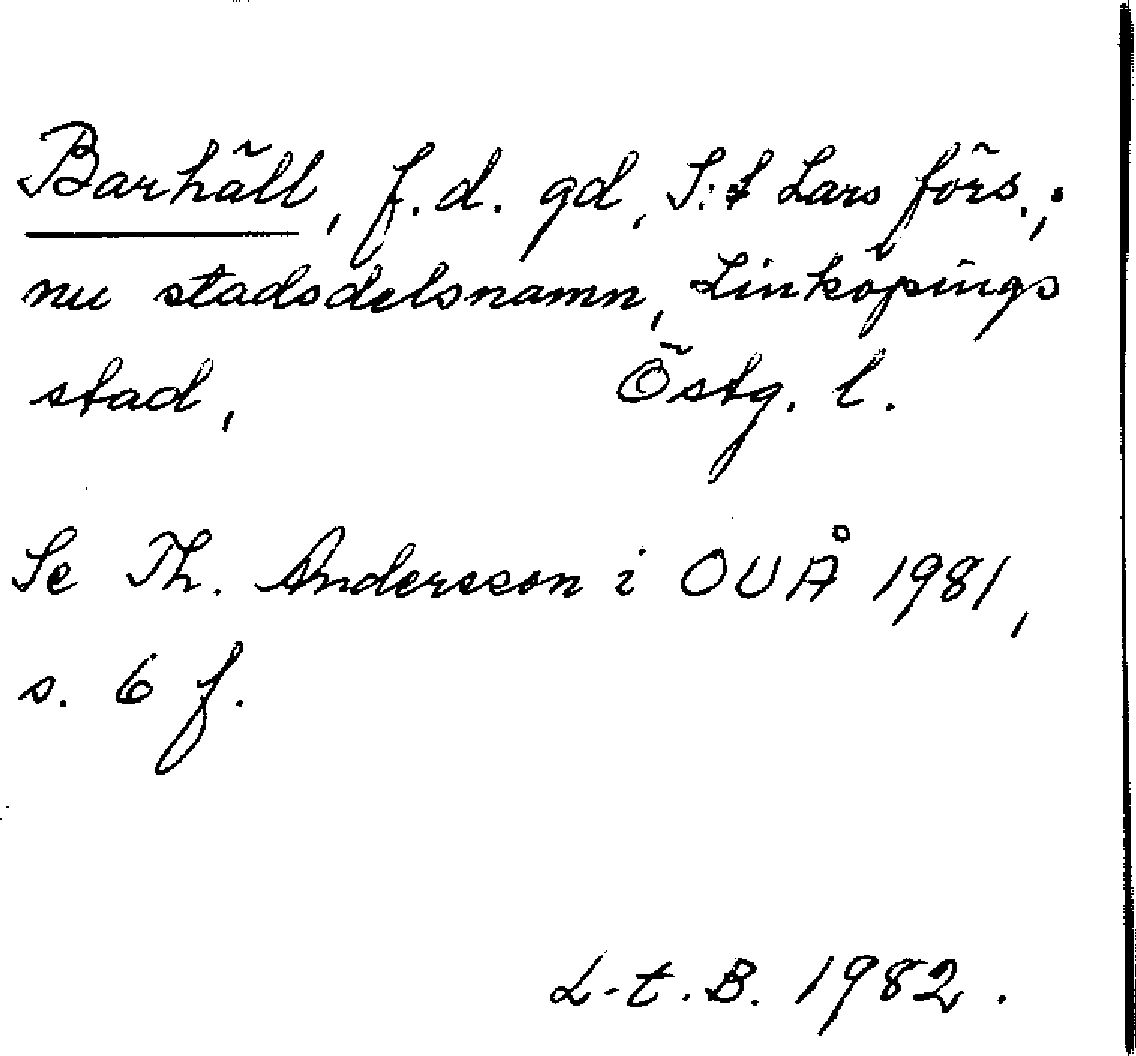 Barhäll, f.d. gd, S:t Lars förs.,;
nu stadsdelsnamn, Linköpings
stad, Östg. l.
Se Th. Andersson i OUÅ 1981,
s. 6 f.
L-t. B. 1982.